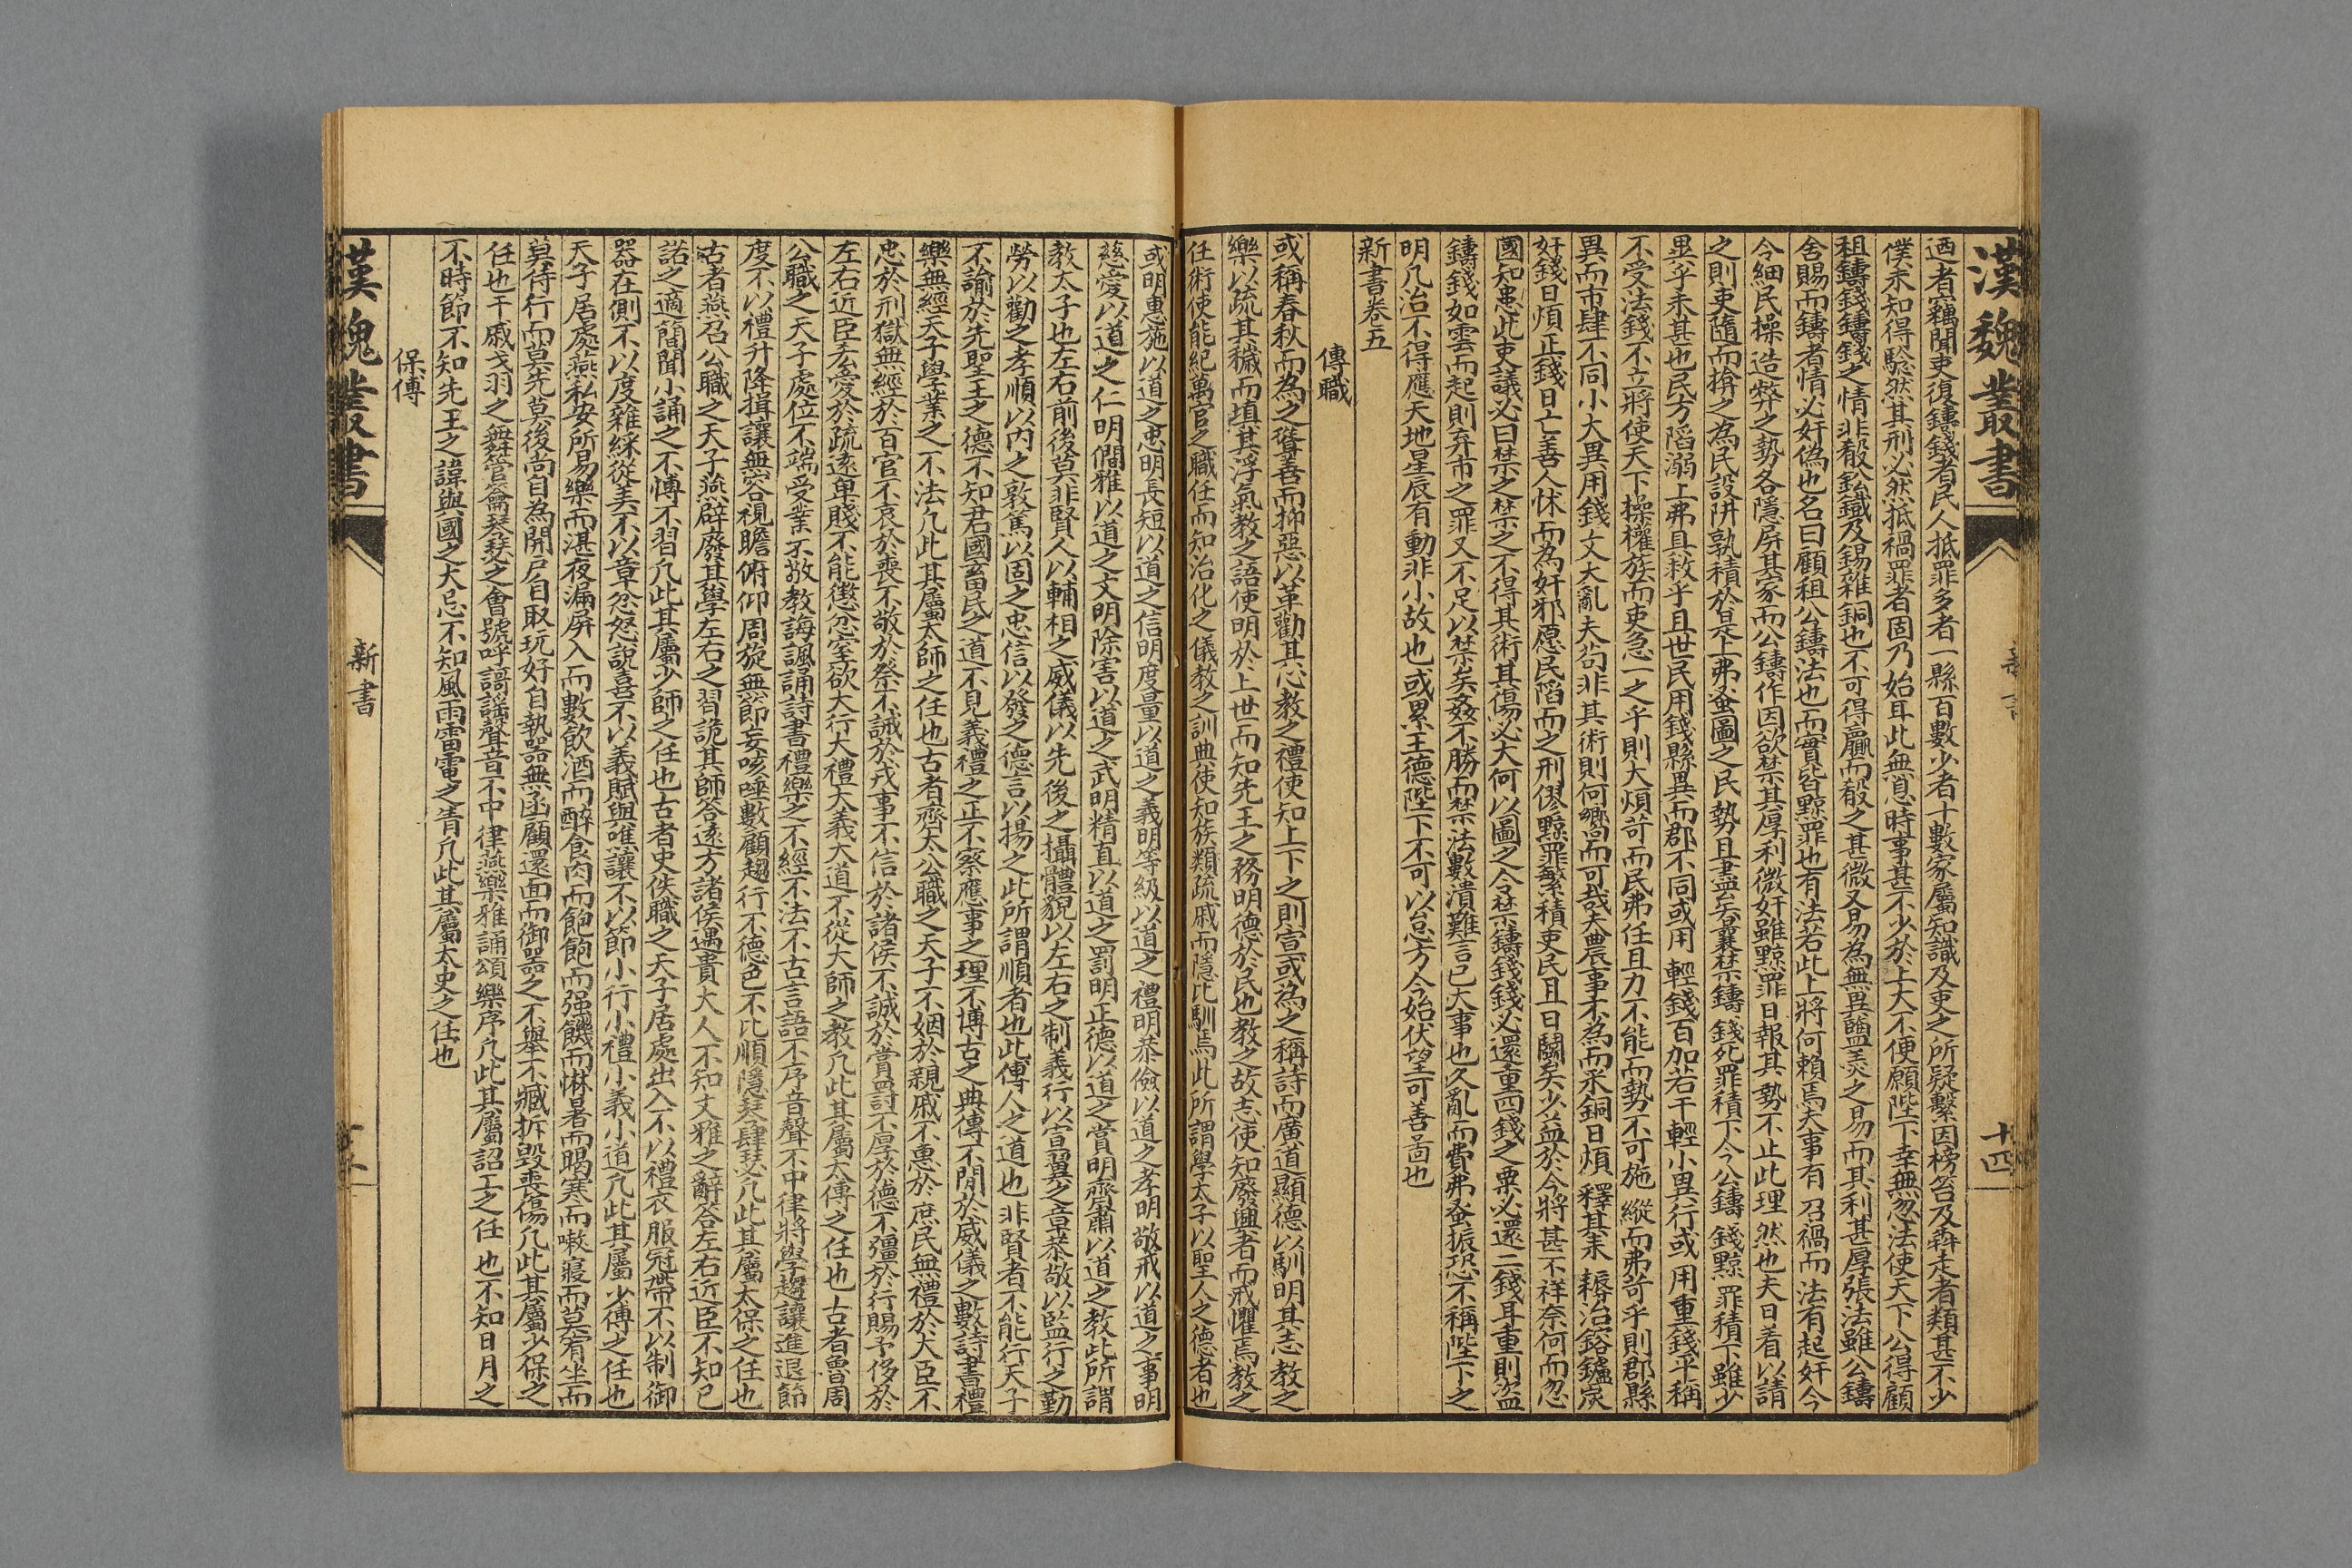 漢魏叢書
新書
十四
迺者竊聞吏復鑄錢者民人抵罪多者一縣百數少者十數家屬知識及吏之所疑繫囚榜笞及犇走者類甚不少
僕未知得騐然其刑必然抵禍罪者固乃始耳此無息時事甚不少於上大不便願陛下幸無忽法使天下公得顧
租鑄錢鑄錢之情非殽鉛鐵及錫雜銅也不可得贏而殽之甚微又易為無異鹽羹之易而其利甚厚張法雖公鑄
舍賜而鑄者情必奸偽也名曰顧租公鑄法也而實皆黥罪也有法若此上將何賴焉夫事有召禍而法有起奸今
令細民操造弊之勢各隱屏其家而公鑄作因欲禁其厚利微奸雖黥罪日報其勢不止此理然也夫日着以請
之則吏隨而揜之為民設阱孰積於是上弗蚤圖之民勢且盡矣曩禁鑄錢死罪積下今公鑄錢黥罪積下雖少
異乎未甚也民方陷溺上弗具救乎且世民用錢縣異而郡不同或用輕錢百加若干輕小異行或用重錢平稱
不受法錢不立將使天下操權族而吏急一之乎則大煩苛而民弗任且力不能而勢不可施縱而弗苛乎則郡縣
異而市肆不同小大異用錢文大亂夫苟非其術則何鄉而可哉夫農事不為而采銅日煩釋其耒耨冶鎔鑪炭
奸錢日煩正錢日亡善人怵而為奸邪愿民陷而之刑僇黥罪繁積吏民且日鬬矣少益於今將甚不祥奈何而忽
國知患此吏議必曰禁之禁之不得其術其傷必大何以圖之令禁鑄錢錢必還重四錢之粟必還二錢耳重則盜
鑄錢如雲而起則弃市之罪又不足以禁矣姦不勝而禁法數潰難言已大事也久亂而費弗蚤振恐不稱陛下之
明凡治不得應天地星辰有動非小故也或累王德陛下不可以怠方今始伏望可善啚也
新書卷五
傅職
或稱春秋而為之聳善而抑惡以革勸其心教之禮使知上下之則宣或為之稱詩而廣道顯德以馴明其志教之
樂以疏其穢而填其浮氣教之語使明於上世而知先王之務明德於民也教之故志使知廢興者而戒懼焉教之
任術使能紀萬官之職任而知治化之儀教之訓典使知族類疏戚而隱比馴焉此所謂學太子以聖人之德者也
或明惠施以道之忠明長短以道之信明度量以道之義明等級以道之禮明恭儉以道之孝明敬戒以道之事明
慈愛以道之仁明僩雅以道之文明除害以道之武明精直以道之罰明正德以道之賞明齋肅以道之教此所謂
教太子也左右前後莫非賢人以輔相之威儀以先後之攝體貌以左右之制義行以宣翼之音恭敬以監行之勤
勞以勸之孝順以內之敦篤以固之忠信以發之德言以揚之此所謂順者也此傅人之道也非賢者不能行天子
不諭於先聖王之德不知君國畜民之道不見義禮之正不察應事之理不博古之典傳不閒於威儀之數詩書禮
樂無經天子學業之不法凡此其屬太師之任也古者齊太公職之天子不姻於親戚不惠於庶民無禮於大臣不
忠於刑獄無經於百官不哀於喪不敬於祭不誠於戎事不信於諸侯不誠於賞罸不厚於德不彊於行賜予侈於
左右近臣吝愛於疏逺卑賤不能懲忿窒欲大行大禮大義大道不從大師之教凡此其屬太傅之任也古者魯周
公職之天子處位不端受業不敬教誨諷誦詩書禮樂之不經不法不古言語不序音聲不中律將學趨讓進退節
度不以禮升降揖讓無容視瞻俯仰周旋無節妄咳唾數顧趨行不德色不比順隱琴肆瑟凡此其屬太保之任也
古者燕召公職之天子燕辟廢其學左右之習詭其師答逺方諸侯遇貴大人不知文雅之辭答左右近臣不知已
諾之適簡聞小誦之不愽不習凡此其屬少師之任也古者史佚職之天子居處出入不以禮衣服冠帶不以制御
器在側不以度雜綵從美不以章忿怒說喜不以義賦與噍讓不以節小行小禮小義小道凡此其屬少傅之任也
天子居處燕私安所易樂而湛夜漏屏人而數飲酒而醉食肉而飽飽而强饑而惏暑而暍寒而嗽寢而莫宥坐而
莫侍行而莫先莫後尚自為開戶自取玩好自執器無亟顧還面而御器之不舉不臧折毀喪傷凡此其屬少保之
任也干戚戈羽之舞管籥琴瑟之會號呼謌謠聲音不中律燕樂雅誦頌樂序凡此其屬詔工之任也不知日月之
不時節不知先王之諱與國之大忌不知風雨雷電之眚凡此其屬太史之任也
保傅
漢魏叢書
新書